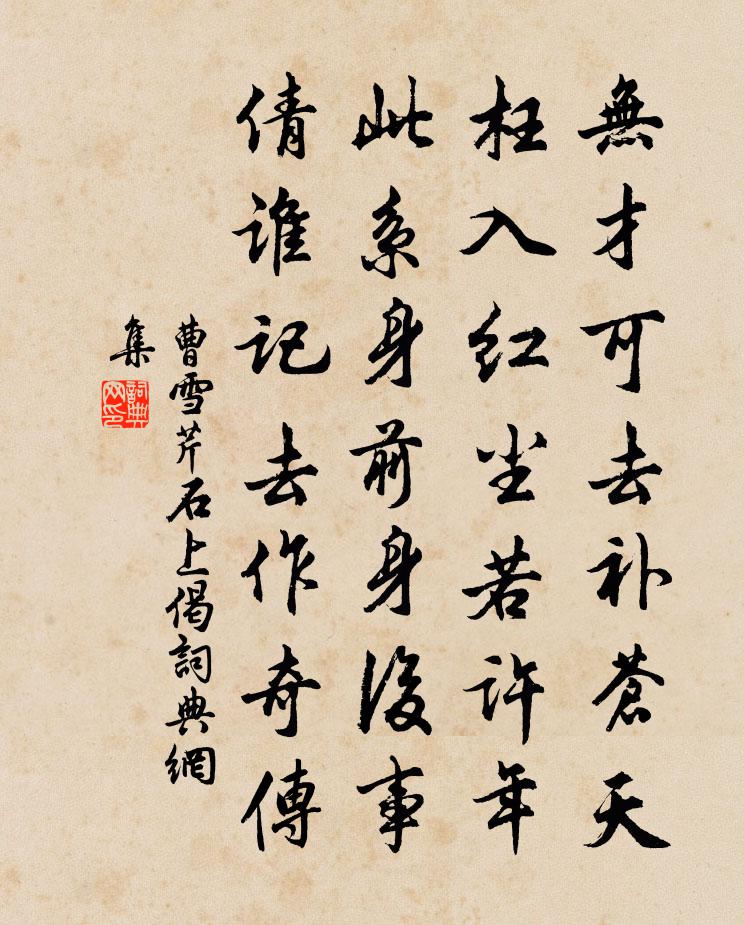 無才可去补蒼天
枉入红尘若许年
此系身前身後事
倩谁记去作奇傳
曹雪芹石上偈詞典網
集
詞典网印